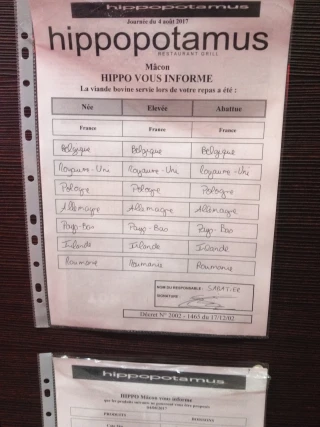 hippopotamus
Journée du 4 août 2017
hippopotamus
RESTAURANT GRILL
Mâcon
HIPPO VOUS INFORME
La viande bovine servie lors de votre repas a été :
Née Elevée Abattue
France France France
Belgique Belgique Belgique
Royaume-Uni Royaume-Uni Royaume-Uni
Pologne Pologne Pologne
Allemagne Allemagne Allemagne
Pays-Bas Pays-Bas Pays-Bas
Irlande Irlande Irlande
Roumanie Roumanie Roumanie
NOM DU RESPONSABLE : SABATIER
SIGNATURE
Décret N° 2002 - 1465 du 17/12/02
hippopotamus
HIPPO Mâcon vous informe
que les produits suivants ne pourront vous être proposés
PRODUITS